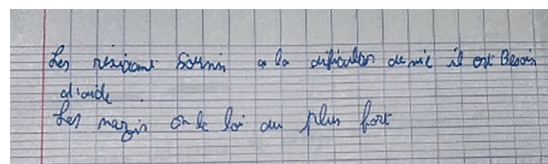 Les résistant Soumis a la dificulter de vie il ont Besoin
d'aide.
Les nazis on le loi du plus fort